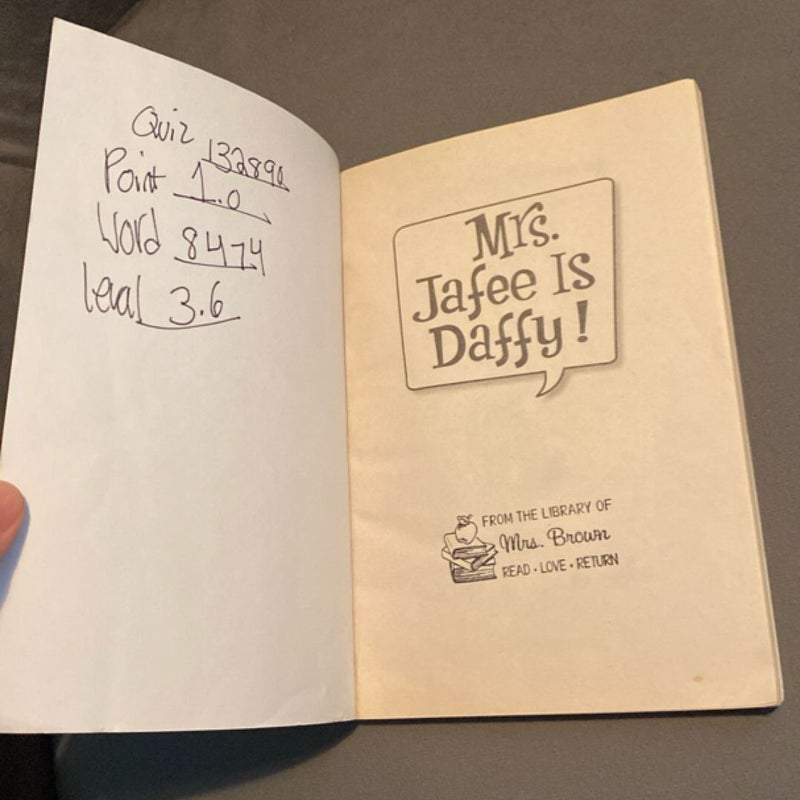 Quiz 132890
Point 1.0
Word 8474
Level 3.6
Mrs.
Jafee Is
Daffy!
FROM THE LIBRARY OF
Mrs. Brown
READ • LOVE • RETURN